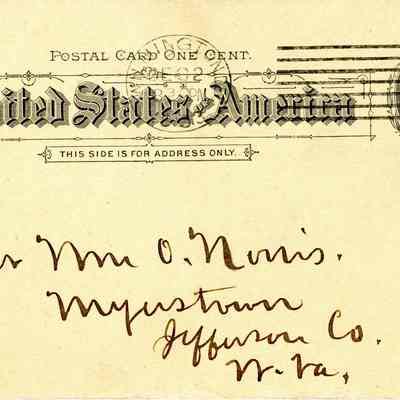 POSTAL CARD ONE CENT.
nited States of America
THIS SIDE IS FOR ADDRESS ONLY.
Wm O. Norris.
Myerstown
Jefferson Co.
W. Va.